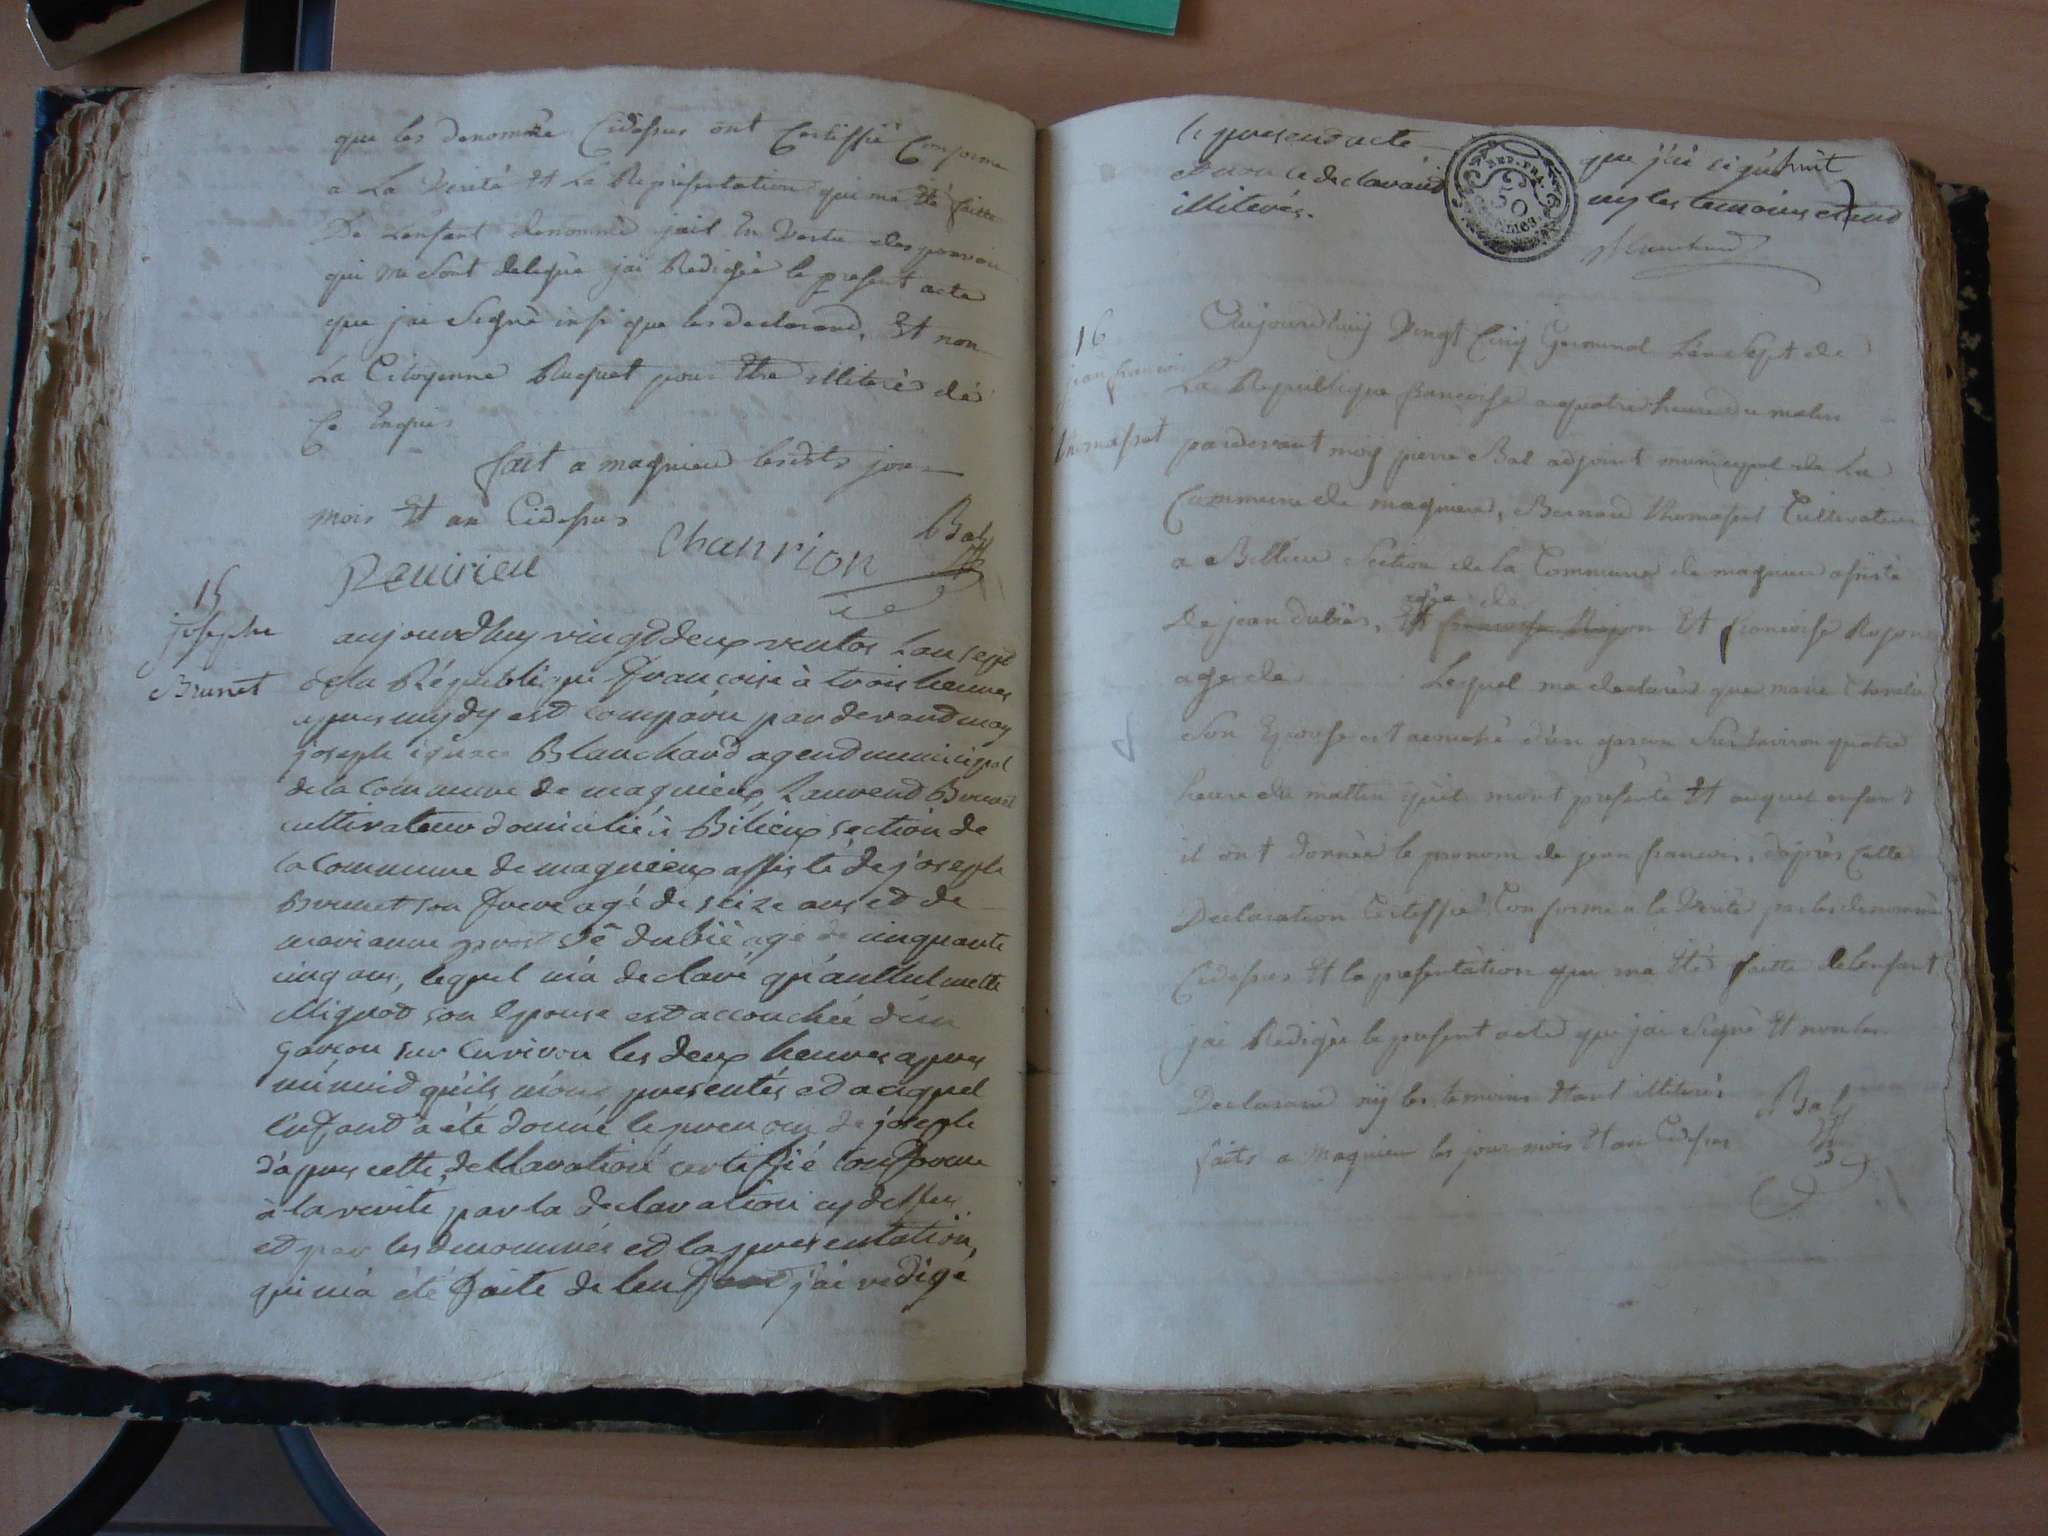 que les denommée Cidessus ont Certiffié Conforme
a La Verité Et La Représentation qui ma été faitte
De Lenfant denommé jail En Vertu des pouvoir
qui me sont delegué jai Redigée le présent acte
que jai Signé insi que les declarand, Et non
La Citoyenne Buquet pour être illiteré dé
Ce Enquis
fait a magnieu lesdts jour
mois Et an Cidessus
Bal
Chanrion
Revirieu
15
josephe
Brunet
aujourdhuy vingtdeux ventos Lan sept
de la République françoise à trois heures
apres mydy est comparu par devand moy
joseph ignace Blanchard agend municipal
de la commune de magnieux Laurend Brunet
cultivateur domicilié à Bilieux section de
la commune de magnieux assisté de joseph
Brunet son frere agé de seize ans et de
marianne dubié age de cinquante
cinq ans, lequel m'a declaré qu'anthelmette
Miguod son Epouse est accouchée d'un
garçon sur Environ les deux heures apres
minuid qu'ils m'ont presentés et auquel
l'enfand à été donné le prenom de joseph
d'apres cette declaration certifié conforme
à la verité par la declaration cy dessus
et par les denommés et la presentation,
qui m'a été faite de lenfand j'ai redigé
le presend acte
que j'ai signé
et non le declarand
ny les temoins etand
illiterés.
REP. FRA.
50
CENTIMES.
Blanchard
16
jean francois
thomasset
Aujourdhuij Vingt Cinq Germinal Lan Sept de
La Republique francoise a quatre heure du matin
pardevant moy pierre Bal adjoint municipal de La
Commune de magnieu, Bernard thomasset Cultivateur
a Billieu Section de la Commune de magnieu assisté
De jean dubiès, agé de Et francoise
age de Lequel ma declarés que marie
Son Epouse est acouché d'un garcon Sur Environ quatre
heure du mattin qu'il mont présenté Et auquel enfant
il ont donnée le pronom de jean francois, d'après Cette
Declaration Certiffié Conforme a la Verité par les denommé
Cidessus Et la presentation que ma été faitte de lenfant
jai Redigée le présent acte que jai Signé Et non les
Declarand nij les temoins Etant illiterés
faits a Magnieu les jour mois Et an Cidessus
Bal